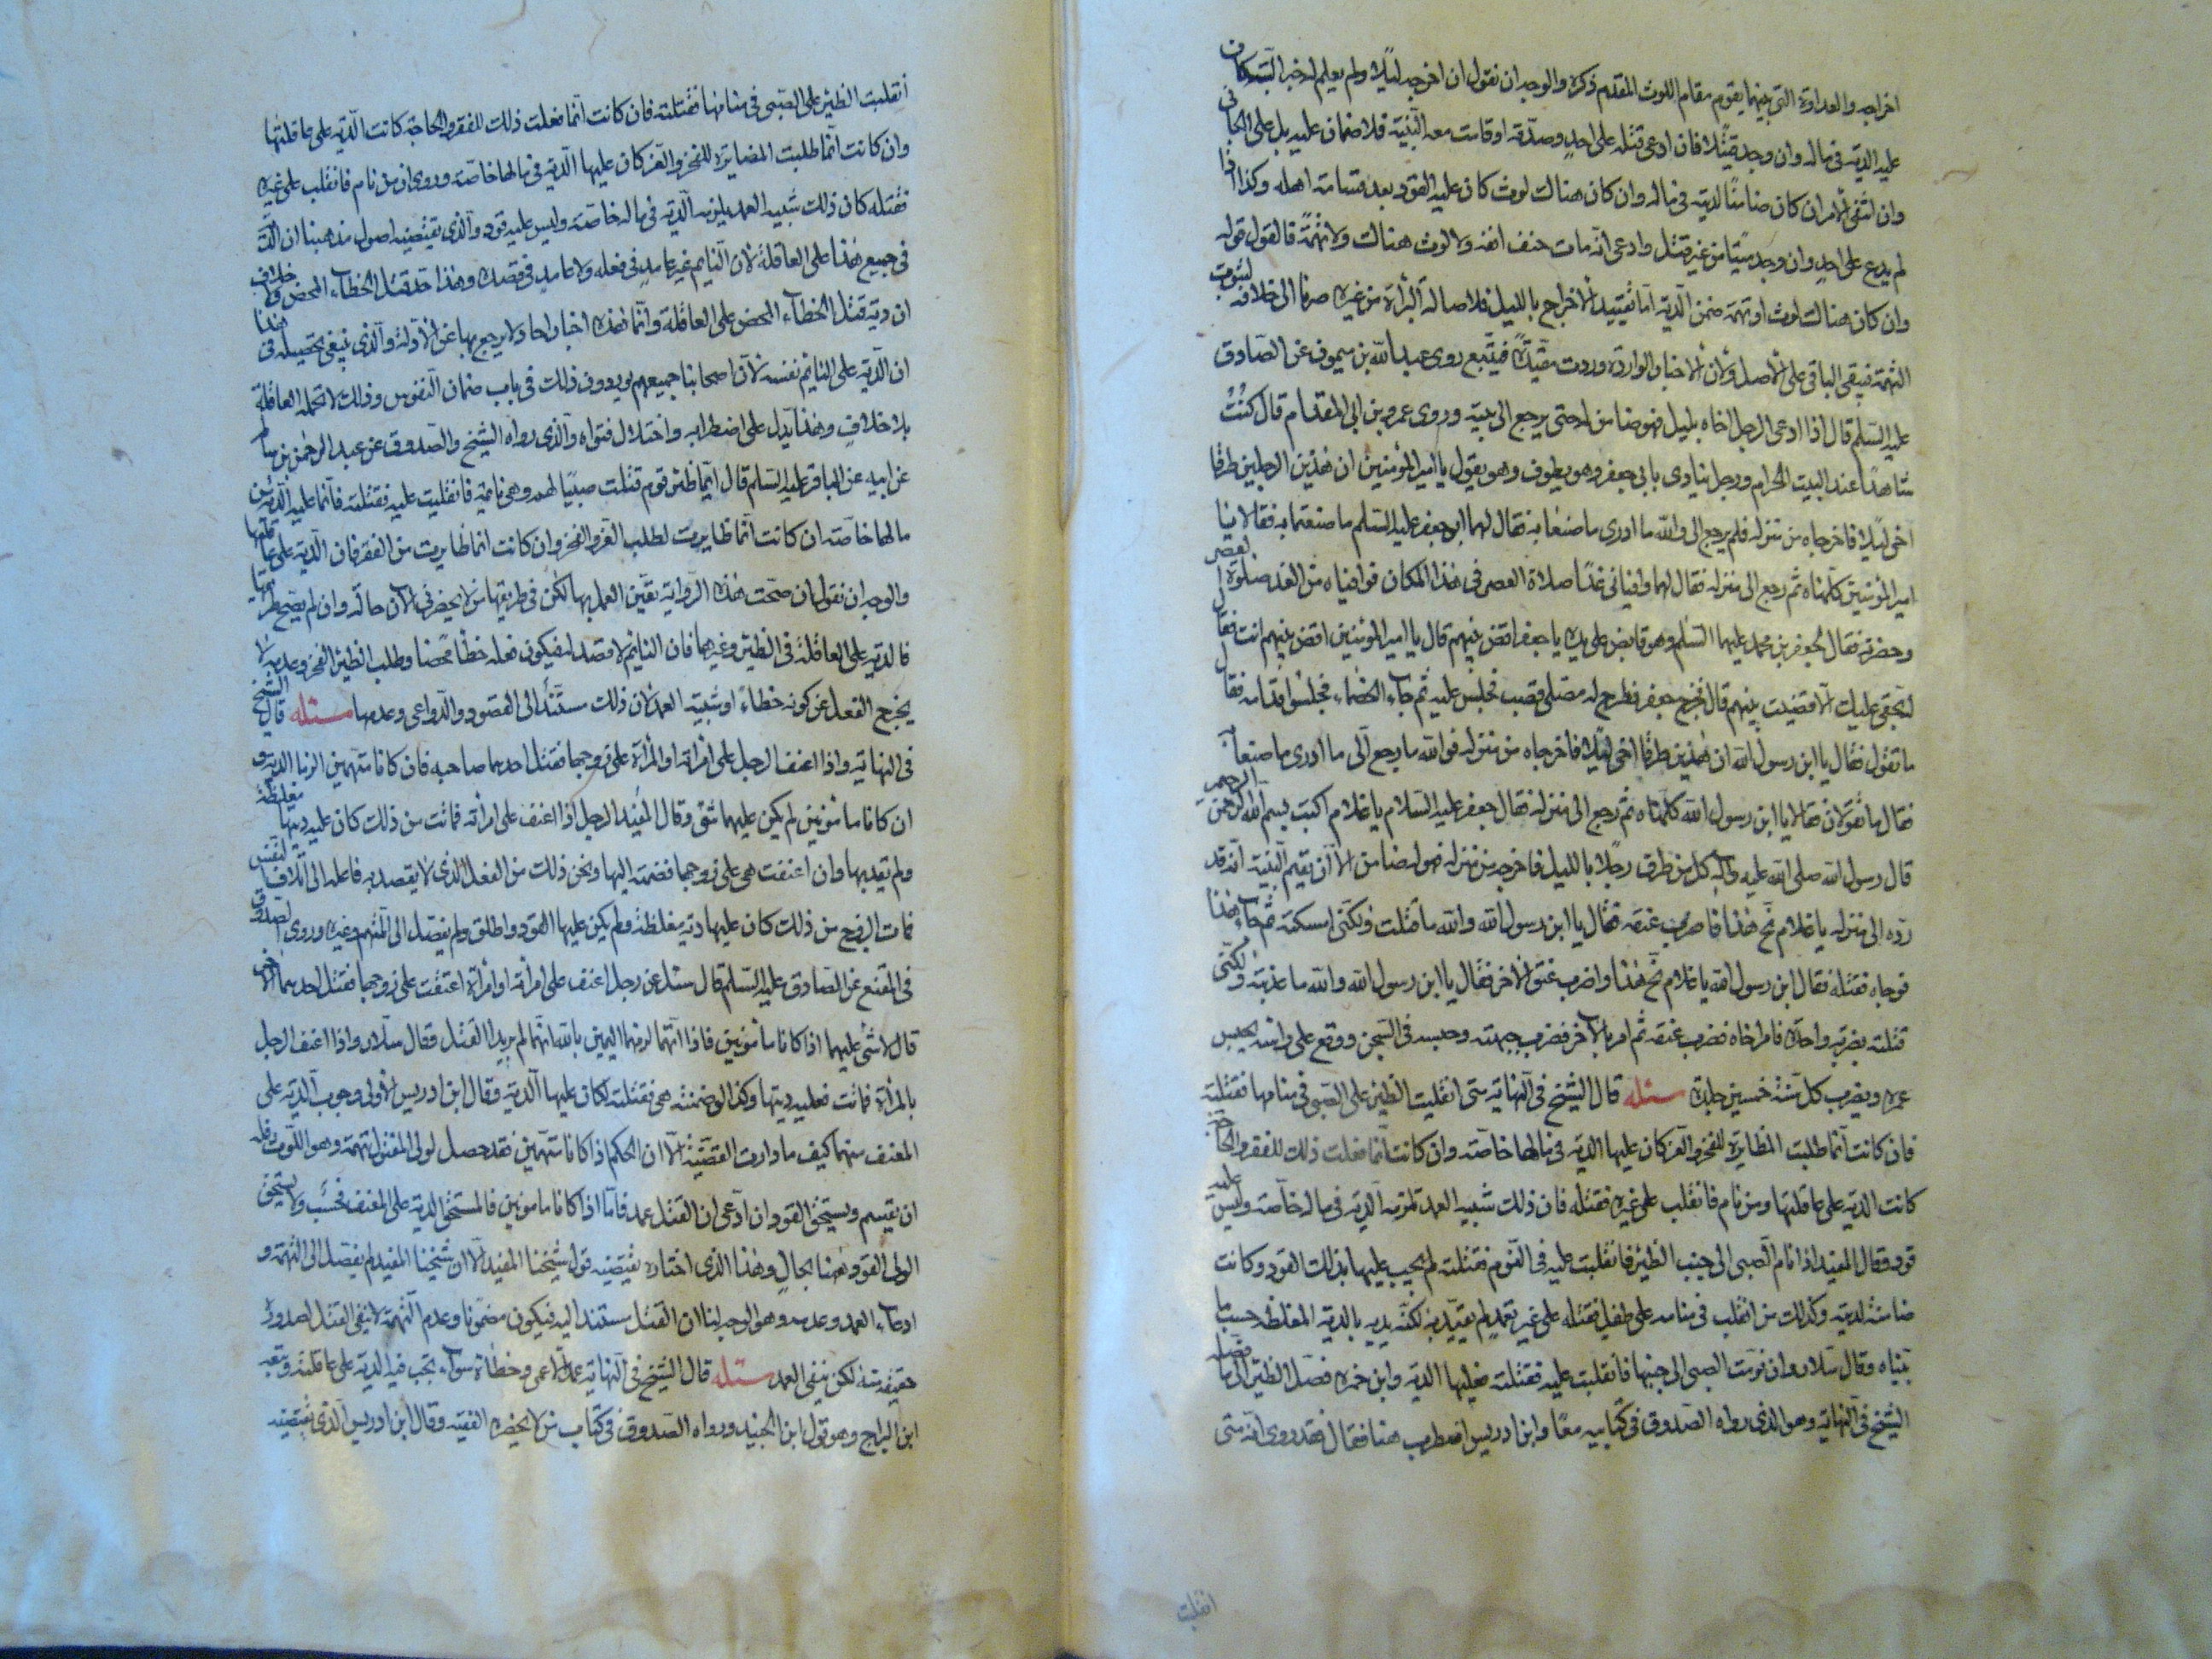 اخراجه والعداوة التى بينهما يقوم مقام اللوث المقدم ذكره والوجه ان نقول ان اخرجه ليلا ولم يعلم له خبر البتة كان
عليه الدية فى ماله وان وجد قتيلا فان ادعى قتله على احد وصدقه او قامت معه البينة فلا ضمان عليه بل على الجانى
وان انتفى الامران كان ضامنا لديته فى ماله وان كان هناك لوث كان عليه القود بعد قسامة اهله وكذا اذا
لم يدع على احد وان وجد ميتا من غير قتل وادعى انه مات حتف انفه ولا لوث هناك ولا تهمة فالقول قوله
وان كان هناك لوث او تهمة ضمن الدية اما تقييد الاخراج بالليل فلاصالة البراءة من غيره صرنا الى خلافه لثبوت
التهمة فيبقى الباقى على الاصل ولان الاخبار الواردة وردت مقيدة فيتبع روى عبد الله بن ميمون عن الصادق
عليه السلم قال اذا ادعى الرجل اخاه بليل فهو ضامن له حتى يرجع الى بيته وروى عمرو بن ابى المقدام قال كنت
شاهدا عند البيت الحرام ورجل ينادى بابى جعفر وهو يطوف وهو يقول يا امير المؤمنين ان هذين الرجلين طرقا
اخى ليلا فاخرجاه من منزله فلم يرجع الى والله ما ادرى ما صنعا به فقال لهما ابو جعفر عليه السلم ما صنعتما به فقالا يا
امير المؤمنين كلمناه ثم رجع الى منزله فقال لهما وافيانى غدا صلاة العصر فى هذا المكان فوافياه من الغد صلوة العصر
وحضرته فقال لجعفر بن محمد عليهما السلم وهو قابض على يده يا جعفر اقض بينهم قال يا امير المؤمنين اقض بينهم انت فقال
له بحقى عليك الا قضيت بينهم قال فخرج جعفر فطرح له مصلى قصب فجلس عليه ثم جاء الخصماء فجلسوا قدامه فقال
ما تقول فقال يا ابن رسول الله ان هذين طرقا اخى ليلا فاخرجاه من منزله فوالله ما رجع الى ما ادرى ما صنعا به
فقال ما تقولان فقالا يا ابن رسول الله كلمناه ثم رجع الى منزله فقال جعفر عليه السلام يا غلام اكتب بسم الله الرحمن الرحيم
قال رسول الله صلى الله عليه واله كل من طرق رجلا بالليل فاخرجه من منزله فهو له ضامن الا ان يقيم البينة انه قد
رده الى منزله يا غلام نح هذا فاضرب عنقه فقال يا ابن رسول الله والله ما قتلت ولكنى امسكته ثم جاء هذا
فوجاه فقتله فقال ابن رسول الله يا غلام نح هذا واضرب عنق الاخر فقال يا ابن رسول الله والله ما عذبته ولكنى
قتلته بضربة واحدة فامر اخاه فضرب عنقه ثم امر بالاخر فضرب جبهته وحبسه فى السجن ووقع على راسه يحبس
عمره ويضرب كل سنة خمسين جلدة مسئله قال الشيخ فى النهاية متى انقلبت الظئر على الصبى فى منامها فقتلته
فان كانت انما طلبت المظايرة للفخر والعز كان عليها الدية فى مالها خاصة وان كانت انما فعلت ذلك للفقر والحاجة
كانت الدية على عاقلتها ومن نام فانقلب على غيره فقتله فان ذلك شبيه العمد تلزمه الدية فى ماله خاصة وليس عليه
قود وقال المفيد اذا نام الصبى الى جنب الظئر فانقلبت عليه فى النوم فقتلته لم يجب عليها بذلك القود وكانت
ضامنة لديته وكذلك من انقلب فى منامه على طفل فقتله على غير تعمد لم يقيد به لكنه يديه بالدية المغلظة حسب ما
بيناه وقال سلار وان نومت الصبى الى جنبها فانقلبت عليه فقتلته فعليها الدية وابن حمزة فصل الظئر الى ما فصله
الشيخ فى النهاية وهو الذى رواه الصدوق فى كتابيه معا وابن ادريس اضطرب هنا فقال فقد روى انه متى
انقلبت
انقلبت الظئر على الصبى فى منامها فقتلته فان كانت انما فعلت ذلك للفقر والحاجة كانت الدية على عاقلتها
وان كانت انما طلبت المضايرة للفخر والعز كان عليها الدية فى مالها خاصة وروى ان من نام فانقلب على غيره
فقتله كان ذلك شبيه العمد يلزمه الدية فى ماله خاصة وليس عليه قود والذى تقتضيه اصول مذهبنا ان الدية
فى جميع هذا على العاقلة لان النايم غير عامد فى فعله ولا عامد فى قصده وهذا حد قتل الخطاء المحض ولا خلاف
ان دية قتل الخطاء المحض على العاقلة وانما هذه اخبار احاد لا يرجع بها عن الادلة والذى ينبغى تحصيله فى هذا
ان الدية على النائم نفسه لان اصحابنا جميعهم يوردون ذلك فى باب ضمان النفوس وذلك لا تحمله العاقلة
بلا خلاف وهذا يدل على اضطرابه واختلال فتواه والذى رواه الشيخ والصدوق عن عبد الرحمن بن سالم
عن ابيه عن الباقر عليه السلم قال ايما ظئر قوم قتلت صبيا لهم وهى نائمة فانقلبت عليه فقتلته فانما عليها الدية من
مالها خاصة ان كانت انما ظايرت لطلب العز والفخر وان كانت انما ظايرت من الفقر فان الدية على عاقلتها
والوجه ان نقول ان صحت هذه الرواية تعين العمل بها لكن فى طريقها من لا يحضرنى الان حاله وان لم يصح طريقها
فالدية على العاقلة فى الظئر وغيرها فان النايم لا قصد له فيكون فعله خطأ محضا وطلب الظئر الفخر وعدمه لا
يخرج الفعل عن كونه خطاء او شبيه العمد لان ذلك مستند الى القصود والدواعى وعدمها مسئله قال الشيخ
فى النهاية واذا اعنف الرجل على امراته او المرأة على زوجها فقتل احدهما صاحبه فان كانا متهمين الزما الدية و
ان كانا مامونين لم يكن عليهما شئ وقال المفيد الرجل اذا اعنف على امراته فماتت من ذلك كان عليه ديتها مغلظة
ولم يقد بها وان اعنفت هى على زوجها فضمته اليها ونحو ذلك من الفعل الذى لا يقصد به فاعله الى اتلاف النفس
فمات الزوج من ذلك كان عليها دية مغلظة ولم يكن عليها القود واطلق ولم يفصل الى المتهم وغيره وروى الصدوق
فى المقنع عن الصادق عليه السلم قال سئل عن رجل اعنف على امراة او امراة اعنفت على زوجها فقتل احدهما الاخر
قال لا شئ عليهما اذا كانا مامونين فاذا اتهما لزمهما اليمين بالله انهما لم يريدا القتل وقال سلار واذا اعنف الرجل
بالمراة فماتت فعليه ديتها وكذا لو ضمته هى فقتلته لكان عليها الدية وقال ابن ادريس الاولى وجوب الدية على
المعنف منهما كيف ما دارت القضية الا ان الحكم اذا كانا متهمين فقد حصل لولى المقتول تهمة وهو اللوث فله
ان يقسم ويستحق القود ان ادعى ان القتل عمد فاما اذا كانا مامونين فالمستحق الدية على المعنف فحسب ولا يستحق
الولى القود ههنا بحال وهذا الذى اختاره يقتضيه قول شيخنا المفيد الا ان شيخنا المفيد لم يفصل الى التهمة و
ادعاء العمد وعدمه وهو الوجه لنا ان القتل مستند اليه فيكون مضمونا وعدم التهمة لا ينفى القتل لصدوره
حقيقة منه لكن ينفى العمد مسئله قال الشيخ فى النهاية عمد الاعمى وخطاه سواء تجب فيه الدية على عاقلته وتبعه
ابن البراج وهو قول ابن الجنيد ورواه الصدوق فى كتاب من لا يحضره الفقيه وقال ابن ادريس الذى يقتضيه